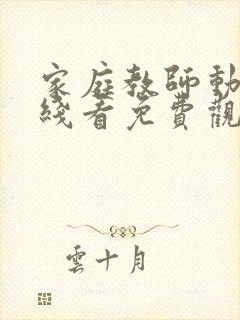 家庭教師動
綫看免費觀
雲十月